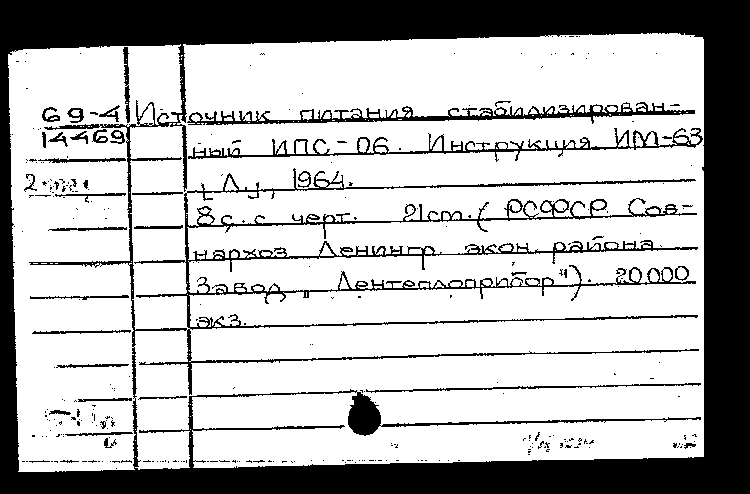 69-4 Источник питания стабилизирован-
14469 ный ИПС-06. Инструкция ИМ-63
[Л.], 1964.
8 с. с черт. 21 cm. (РСФСР. Сов-
нархоз Ленингр. экон. района.
Завод „Лентеплоприбор"). 20.000
экз.